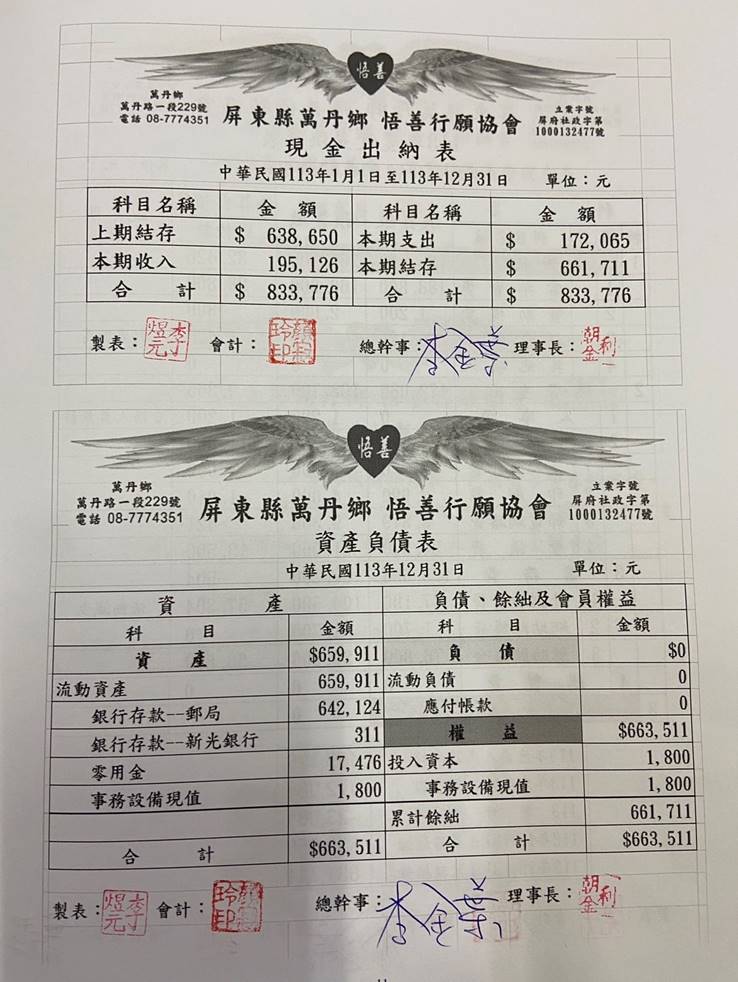 悟善
萬丹鄉
萬丹路一段229號
電話 08-7774351
屏東縣萬丹鄉 悟善行願協會
立案字號
屏府社政字第
1000132477號
現金出納表
中華民國113年1月1日至113年12月31日 單位：元
科目名稱 金 額 科目名稱 金 額
上期結存 $ 638,650 本期支出 $ 172,065
本期收入 195,126 本期結存 $ 661,711
合 計 $ 833,776 合 計 $ 833,776
製表： 會計： 總幹事：李金葉 理事長：
悟善
萬丹鄉
萬丹路一段229號
電話 08-7774351
屏東縣萬丹鄉 悟善行願協會
立案字號
屏府社政字第
1000132477號
資產負債表
中華民國113年12月31日 單位：元
資 產 負債、餘絀及會員權益
科 目 金額 科 目 金額
資 產 $659,911 負 債 $0
流動資產 659,911 流動負債 0
銀行存款--郵局 642,124 應付帳款 0
銀行存款--新光銀行 311 權 益 $663,511
零用金 17,476 投入資本 1,800
事務設備現值 1,800 事務設備現值 1,800
累計餘絀 661,711
合 計 $663,511 合 計 $663,511
製表： 會計： 總幹事：李金葉 理事長：